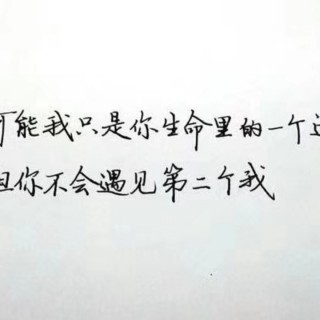 可能我只是你生命里的一个
但你不会遇见第二个我